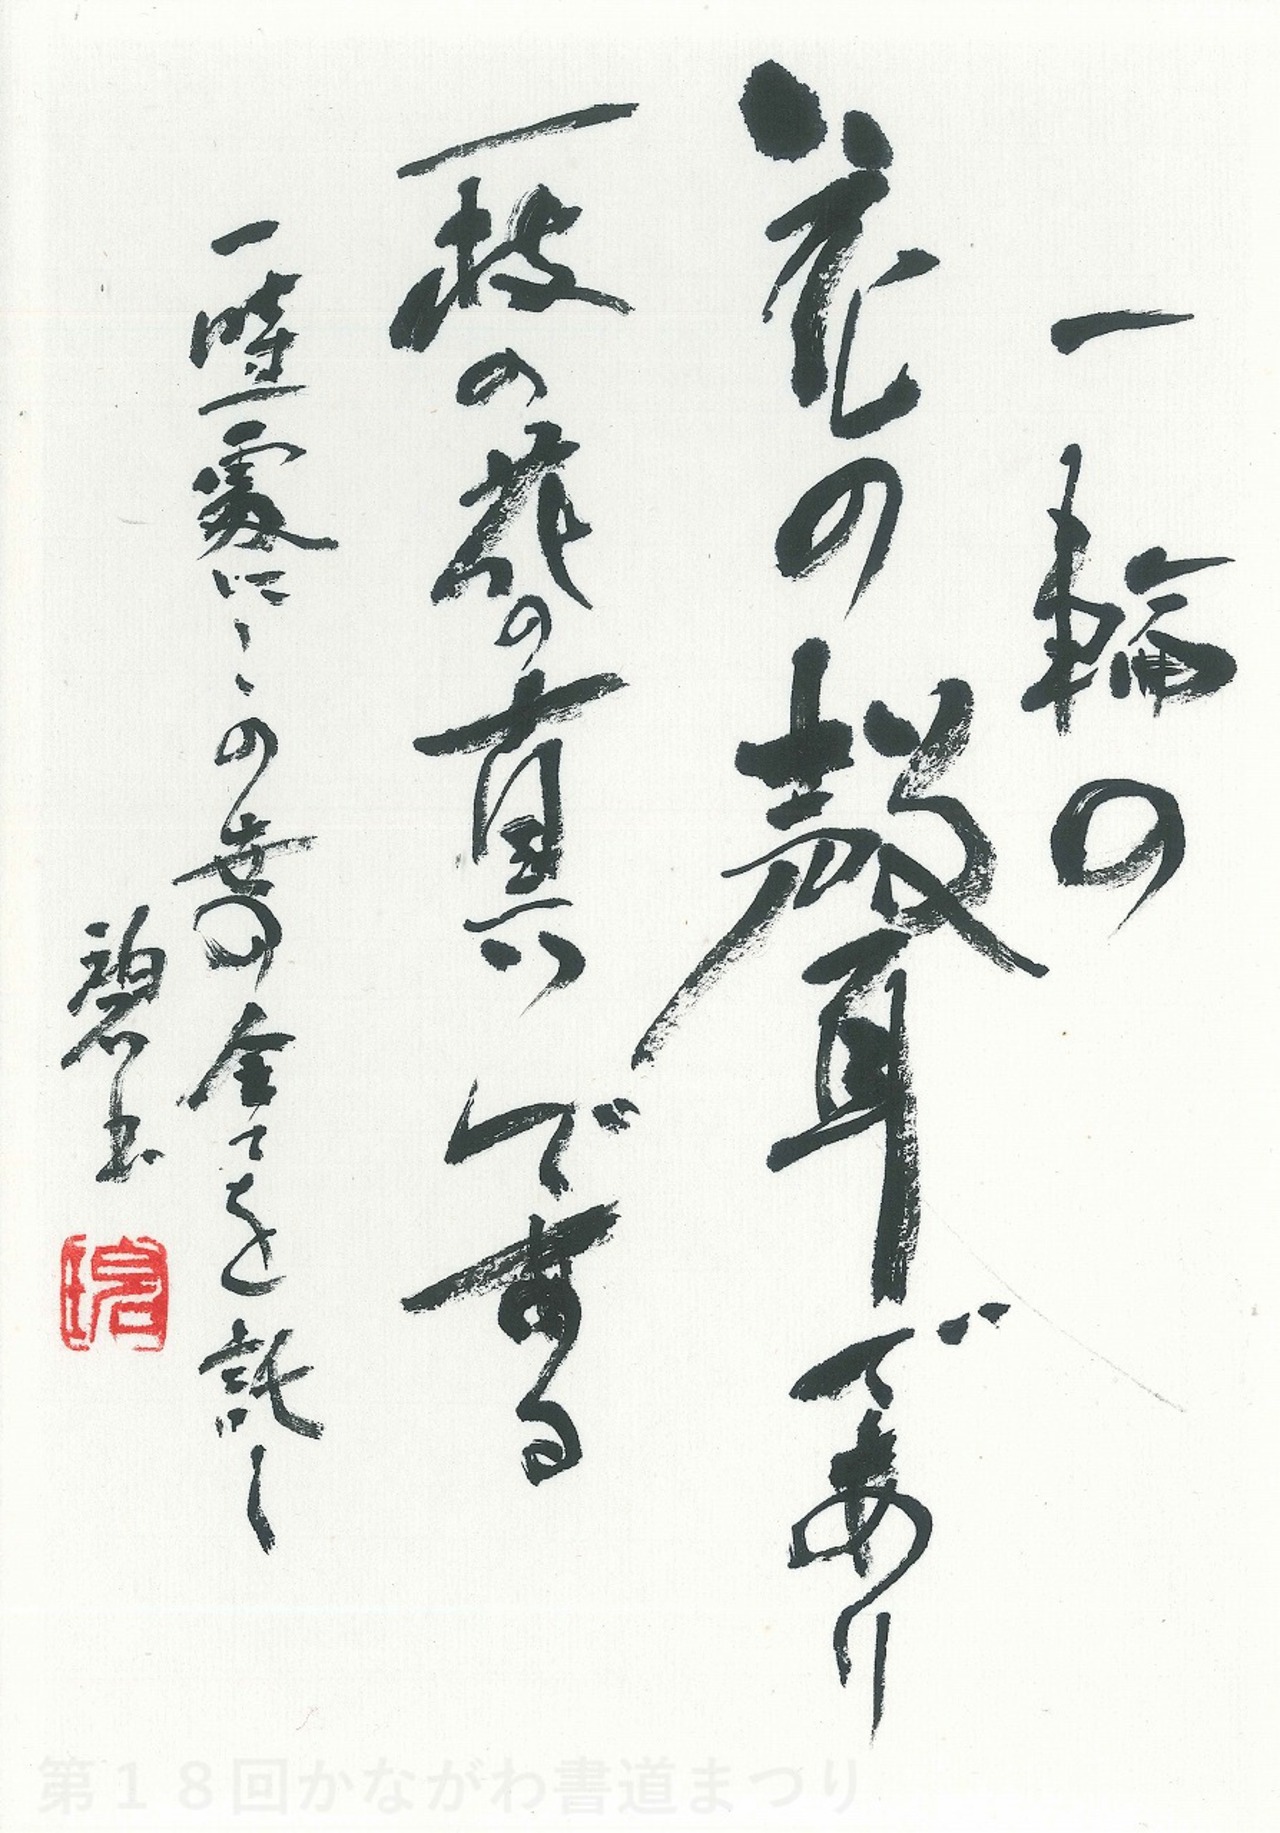 一輪の
花の聲であり
一枝の花の真いである
一時一處にこの世の全てを託し
碧玉
第18回かながわ書道まつり